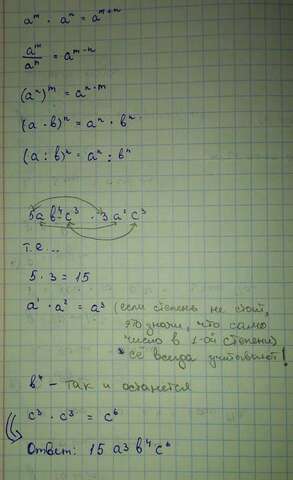 aᵐ · aⁿ = aᵐ⁺ⁿ
aᵐ/aⁿ = aᵐ⁻ⁿ
(aⁿ)ᵐ = aⁿ·ᵐ
(a · в)ⁿ = aⁿ · вⁿ
(a : в)ⁿ = aⁿ : вⁿ
5a в⁴ c³ · 3 a¹ c³
т.е...
5 · 3 = 15
a¹ · a² = a³ (если степень не стоит,
это значи, что само
число в 1-ой степени)
*её всегда учитывают!
в⁴ - так и останется
c³ · c³ = c⁶
Ответ: 15 a3 в⁴ c⁶